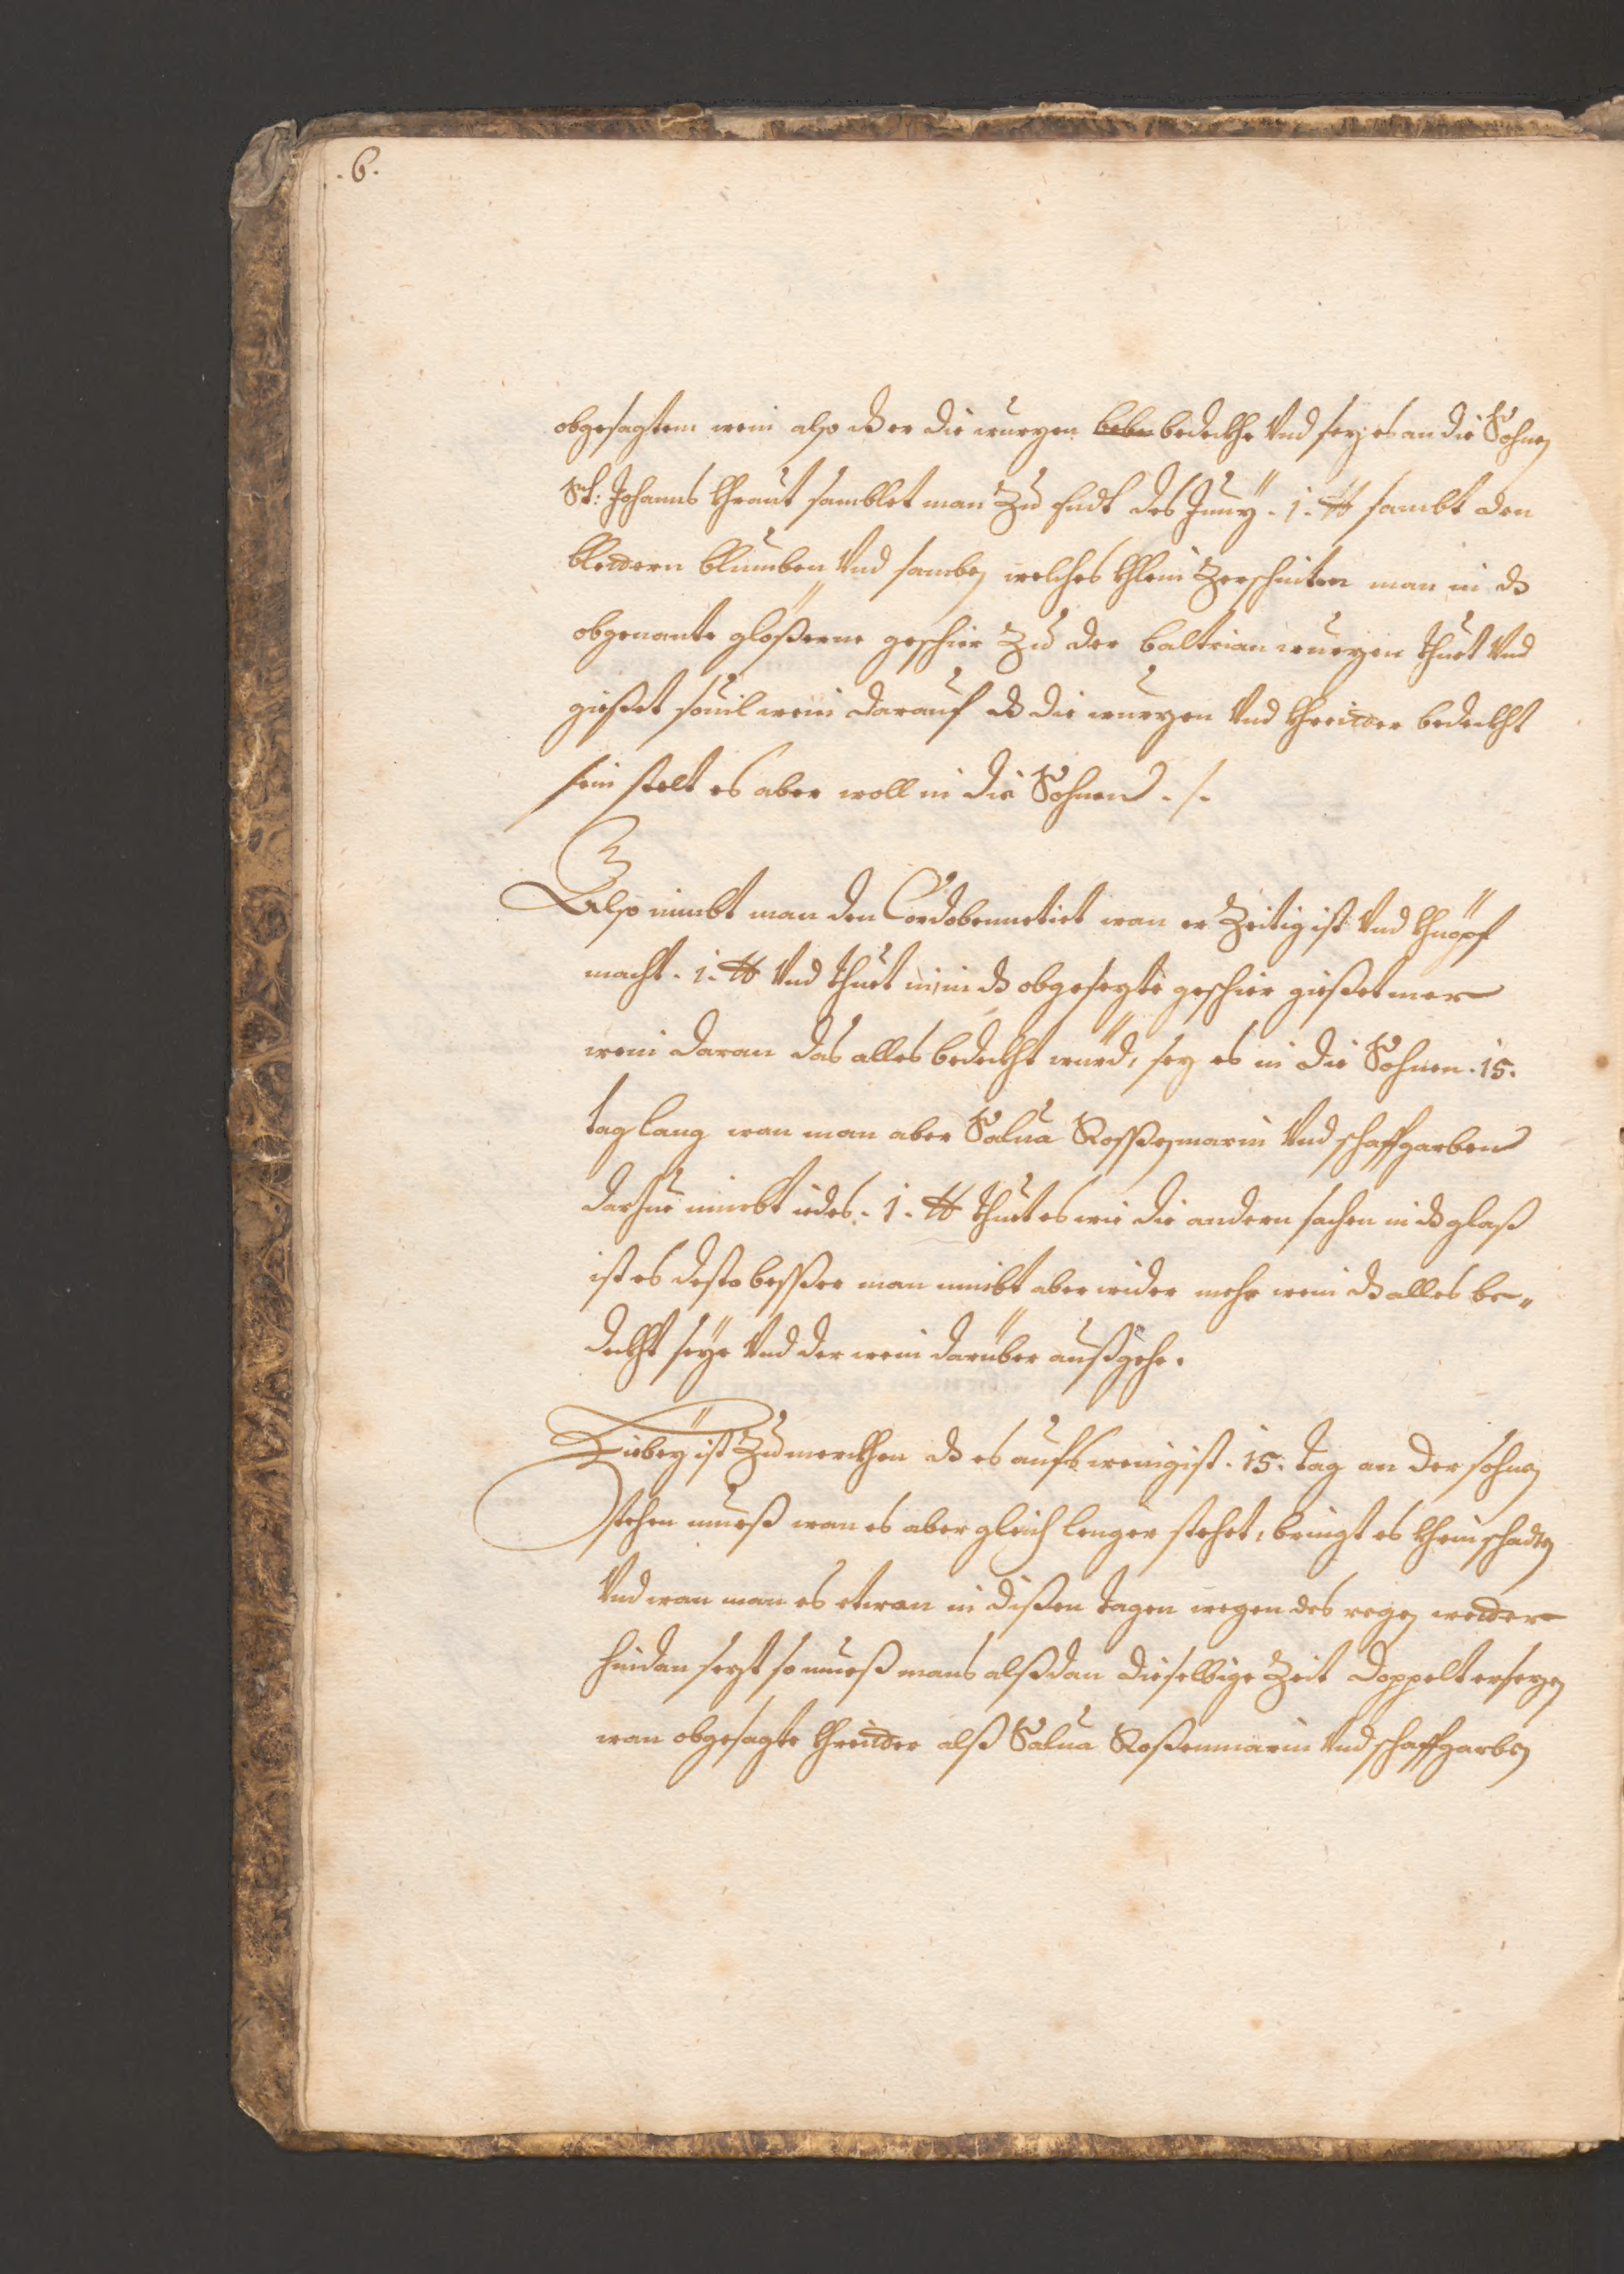 .6.
obgesagtem wein also dß er die wurzen bedeckhe Vnd sez es an die Sohnen
St: Johanns Khraut samblet man Zu Endt des Junÿ . 1. ℔ sambt den
Blettern Blumben Vnd samben welches Khlein Zerschnitten man in dß
obgenante gläßerne geschier Zu der baltrian wurzen thuet Vnd
giesset souil wein darauf dß die wurzen Vnd Khreitter bedeckht
sein stelt es aber woll in die Sohnen ./.
Also nimbt man den Cardobennetict wan er Zeitig ist Vnd Khnöpf
macht . 1. ℔ Vnd thuet in, in dß obgesezte geschier giesset mer
wein daran das alles bedeckht würd, sez es in die Sohnen . 15.
tag lang wan man aber Salua Rossesmarin Vnd schaffgarben
darZue nimbt iedes . 1. ℔ thuet es wie die andern sachen in dß glaß
ist es desto besser man nimbt aber wider mehr wein dß alles be„
deckht seÿe Vnd der wein darüber außgehe.
Hiebeÿ ist Zu merckhen dß es aufs wenigist . 15. tag an der sohnen
stehen mueß wan es aber gleich lenger stehet, bringt es Khein schaden
Vnd wan man es etwan in dißen tagen wegen des regen wetter
hindan sezt so mueß mans alßdan dieselbige Zeit doppelt ersezen
wan obgesagte Khreitter alß Salua Roßenmarin Vnd schaffgarben